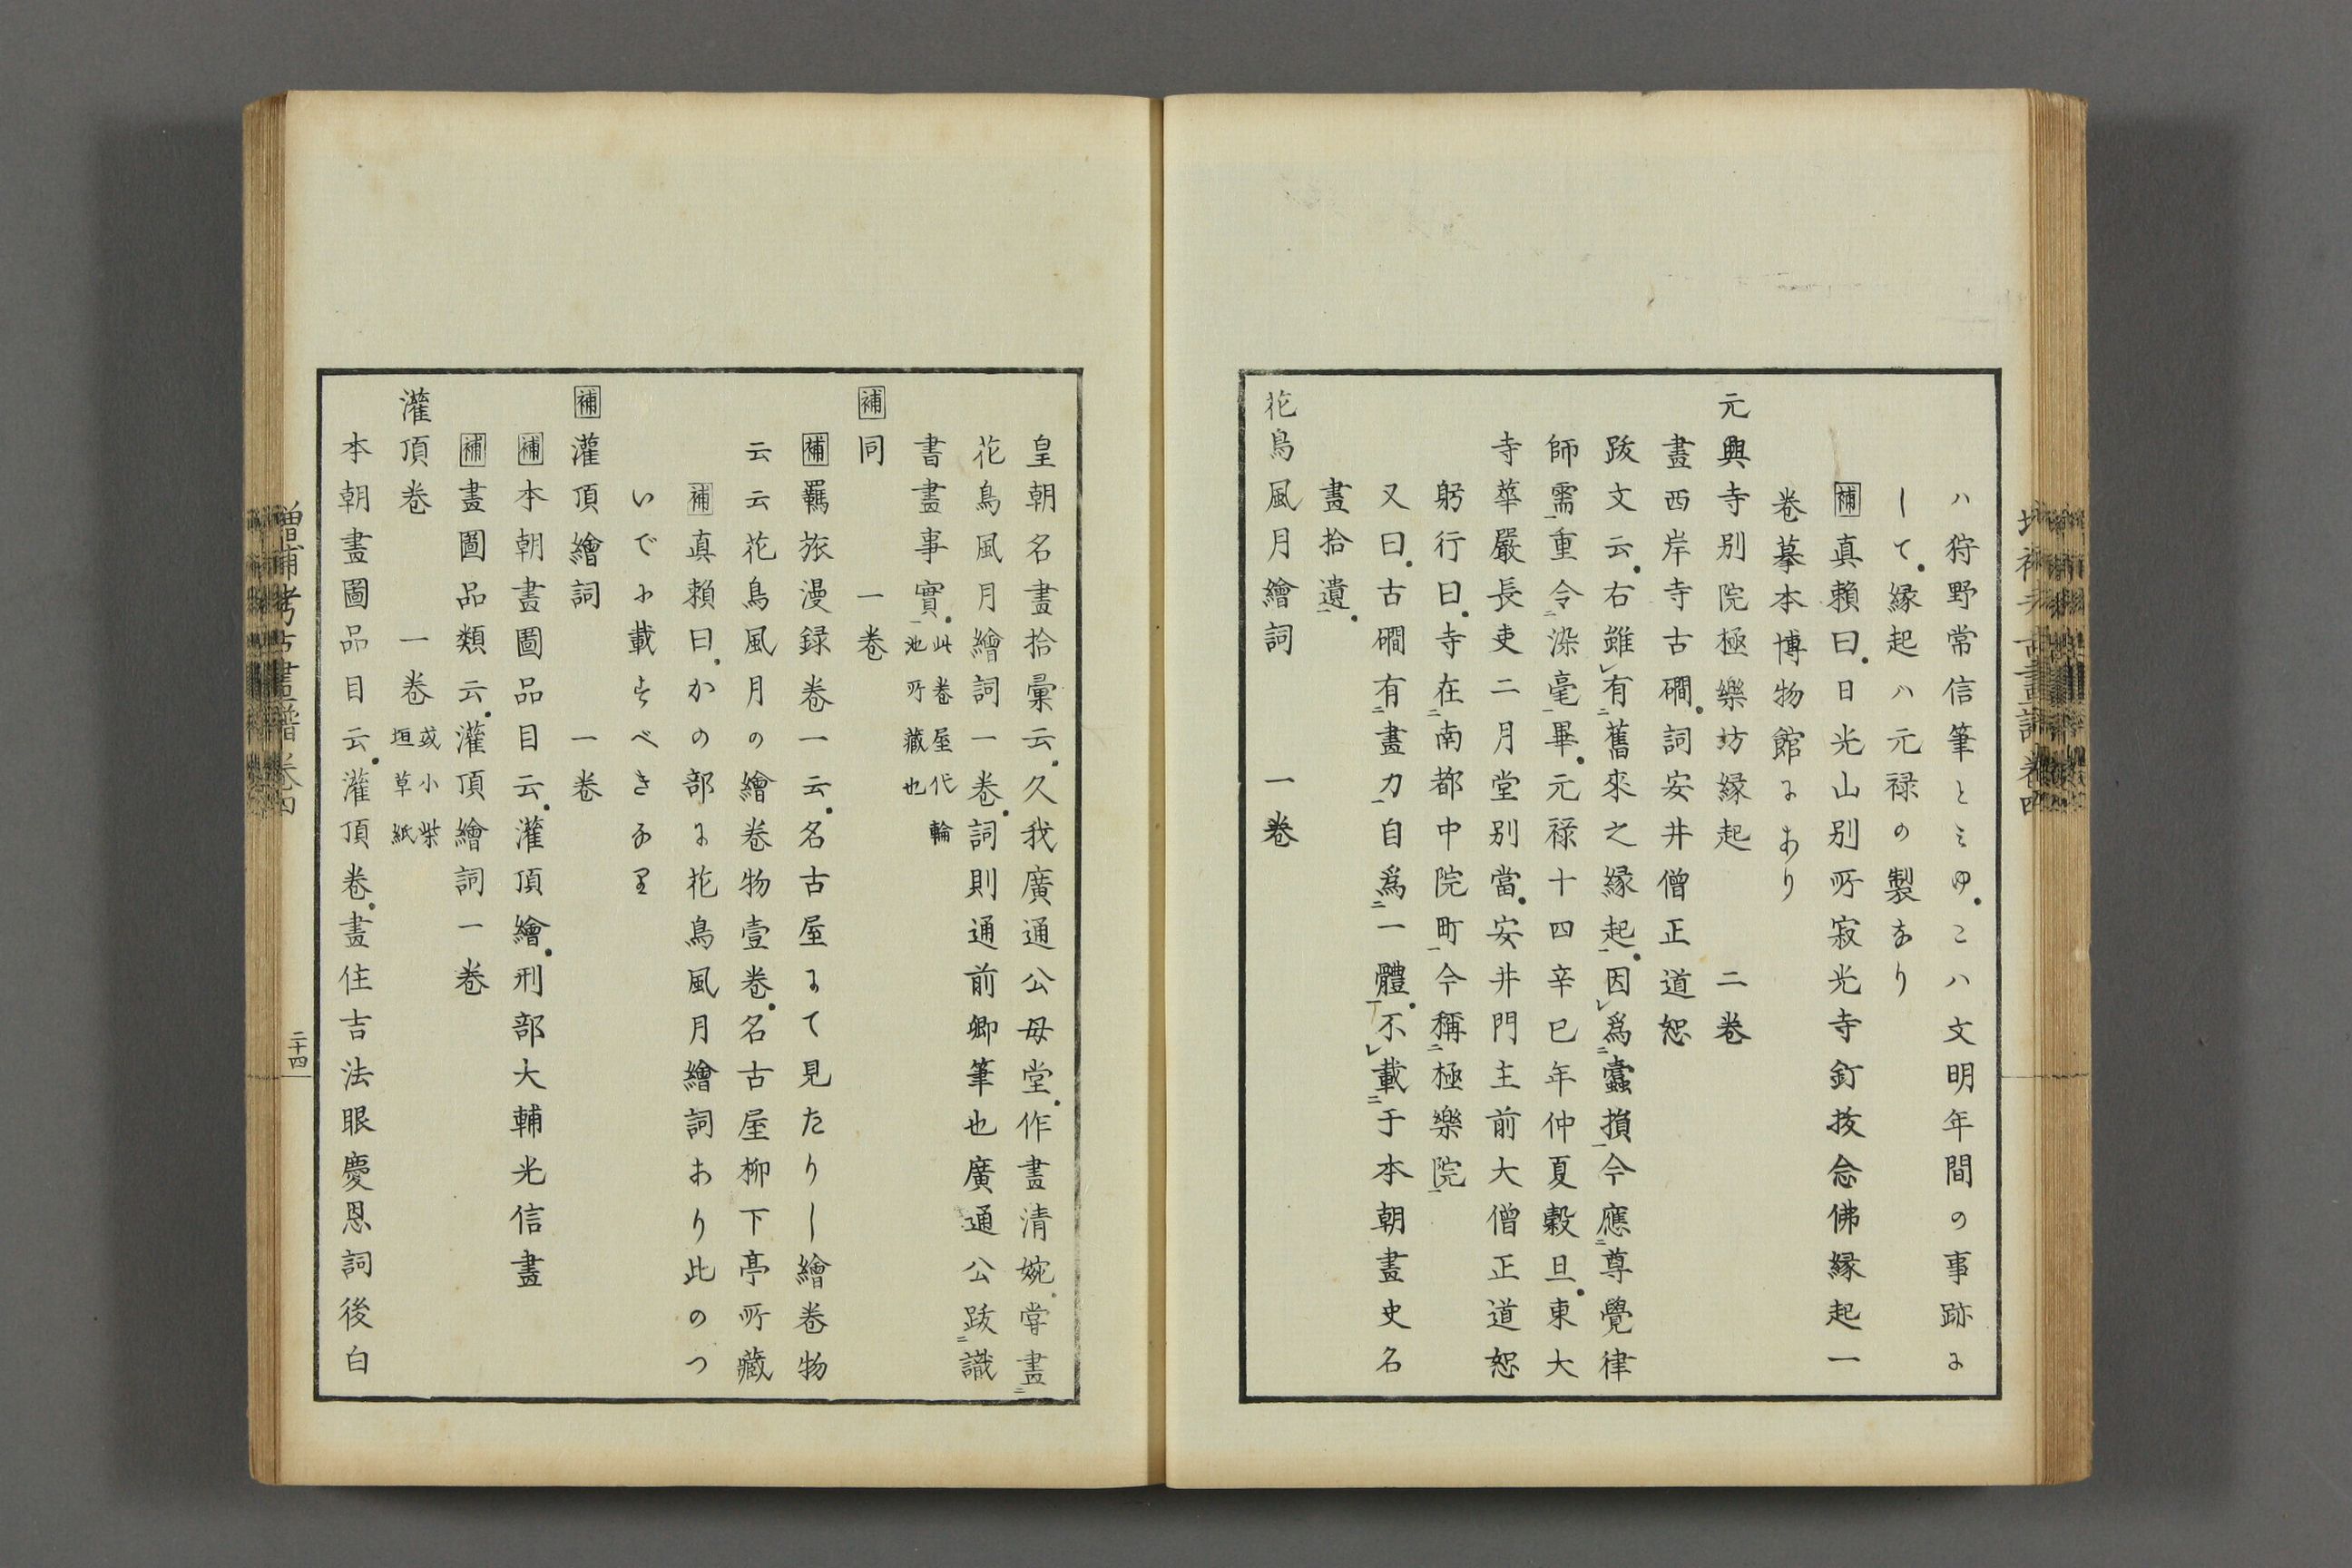 ハ狩野常信筆とミゆ。こハ文明年間の事跡に
して。縁起ハ元禄の製なり
補真頼曰。日光山別所寂光寺釘抜念佛縁起一
卷摹本博物館にあり
元興寺別院極樂坊縁起　二卷
畫西岸寺古磵。詞安井僧正道恕
跋文云。右雖レ有二舊來之縁起一。因レ爲二蠹損一今應二尊覺律
師需一重令二染毫一畢。元禄十四辛巳年仲夏穀旦。東大
寺華嚴長吏二月堂別當。安井門主前大僧正道恕
躬行曰。寺在二南都中院町一今稱二極樂院一
又曰。古磵有二畫力一自爲二一體一。不レ載二于本朝畫史名
畫拾遺一。
花鳥風月繪詞　一卷
皇朝名畫拾彙云。久我廣通公母堂。作畫清婉。嘗畫二
花鳥風月繪詞一卷。詞則通前卿筆也廣通公跋二識
書畫事實一。此卷屋代輪
池所藏也
補同　一卷
補羈旅漫録卷一云。名古屋にて見たりし繪卷物
云云花鳥風月の繪卷物壹卷。名古屋柳下亭所藏
補真頼曰。かの部に花鳥風月繪詞あり此のつ
いでに載すべきなり
補灌頂繪詞　一卷
補本朝畫圖品目云。灌頂繪。刑部大輔光信畫
補畫圖品類云。灌頂繪詞一卷
灌頂卷　一卷 或小柴
垣草紙
本朝畫圖品目云。灌頂卷。畫住吉法眼慶恩詞後白
增補考古畫譜 卷四
二十四